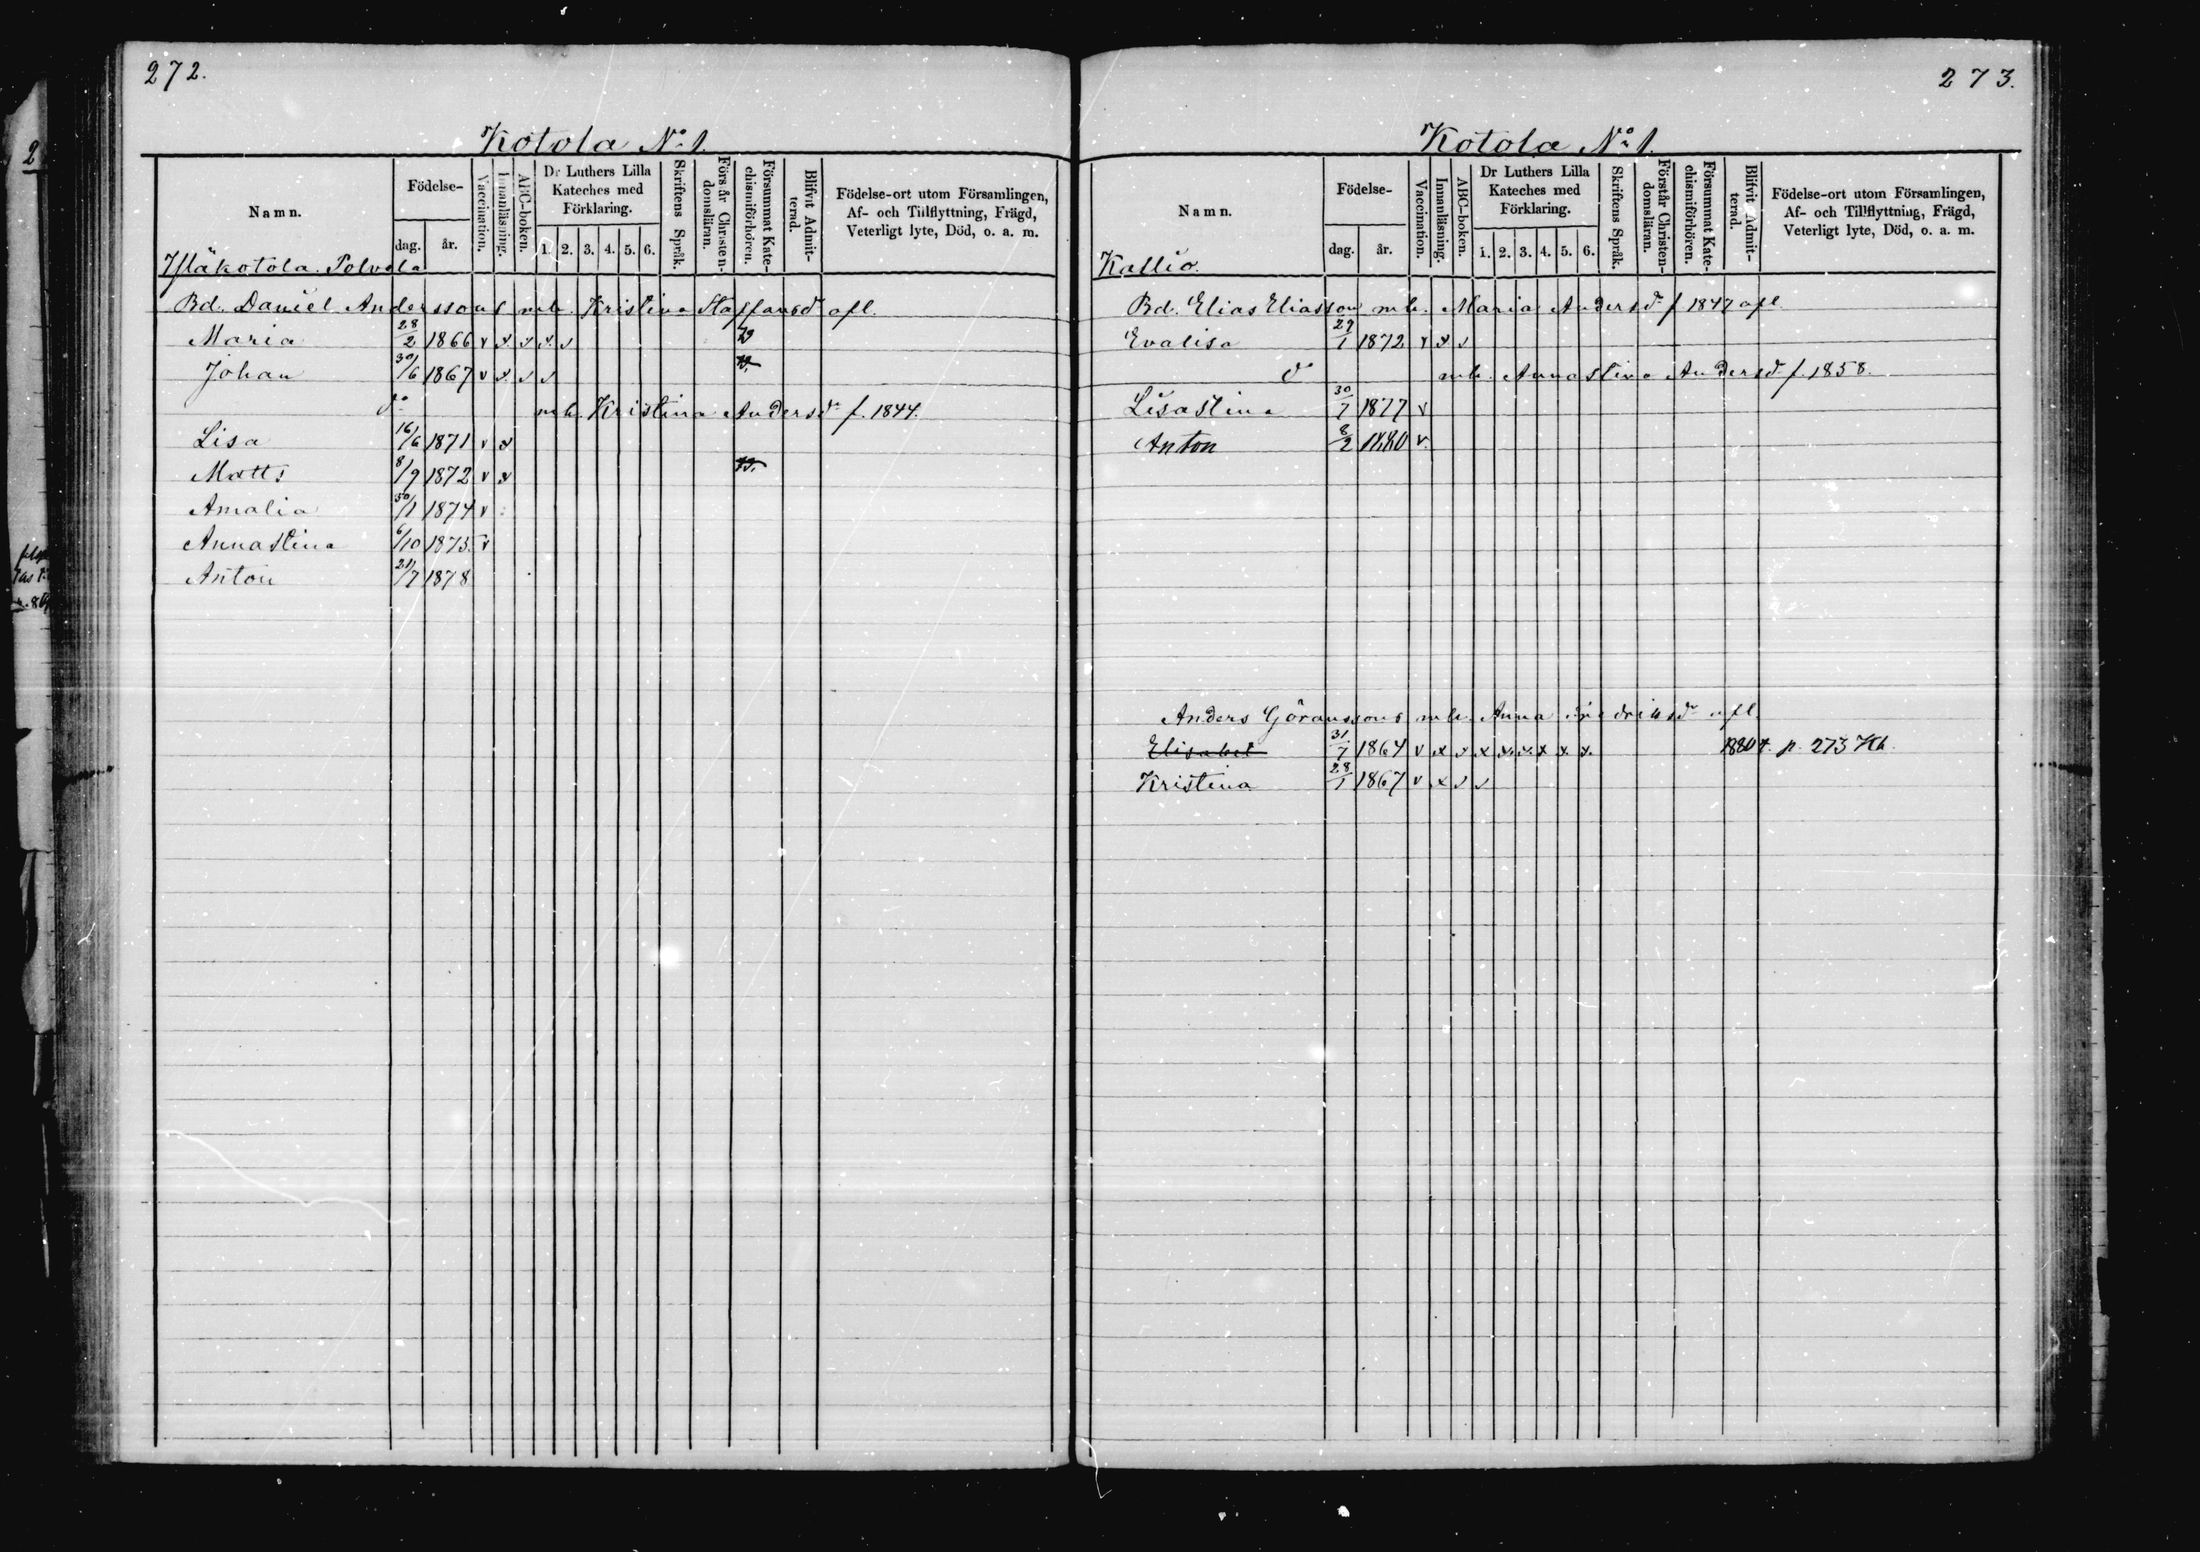 272.
Kotola No 1.
Namn.
Födelse-
dag. år.
Vaccination.
Innanläsning.
ABC-boken.
Dr Luthers Lilla Kateches med Förklaring.
1. 2. 3. 4. 5. 6.
Skriftens Språk.
Förstår Christendomsläran.
Försummat Katechismiförhören.
Blifvit Admitterad.
Födelse-ort utom Församlingen,
Af- och Tillflyttning, Frägd,
Veterligt lyte, Död, o. a. m.
Bd. Daniel Anderssons mh. Kristina Staffansdr afl.
Maria 28/2 1866 v x v x v
Johan 30/6 1867 v x v v
do mh. Kristina Andersdr f. 1844.
Lisa 16/6 1871 v x
Matts 8/9 1872 v x
Amalia 30/1 1874 v
Annastina 6/10 1875 v
Anton 21/7 1878
273.
Kotola No 1.
Namn.
Födelse-
dag. år.
Vaccination.
Innanläsning.
ABC-boken.
Dr Luthers Lilla Kateches med Förklaring.
1. 2. 3. 4. 5. 6.
Skriftens Språk.
Förstår Christendomsläran.
Försummat Katechismiförhören.
Blifvit Admitterad.
Födelse-ort utom Församlingen,
Af- och Tillflyttning, Frägd,
Veterligt lyte, Död, o. a. m.
Kallio.
Bd. Elias Eliasson mh. Maria Andersdr f 1847 afl.
Evalisa 29/1 1872 v x v
mh. Annastina Andersdr f. 1858.
Lisastina 30/7 1877 v
Anton 8/2 1880 v.
Anders Göranssons mh. Anna Fredriksdr afl.
Elisabet 31/7 1864 v x v x x x x x x. 1880 p. 273 Kb.
Kristina 28/1 1867 v x v v